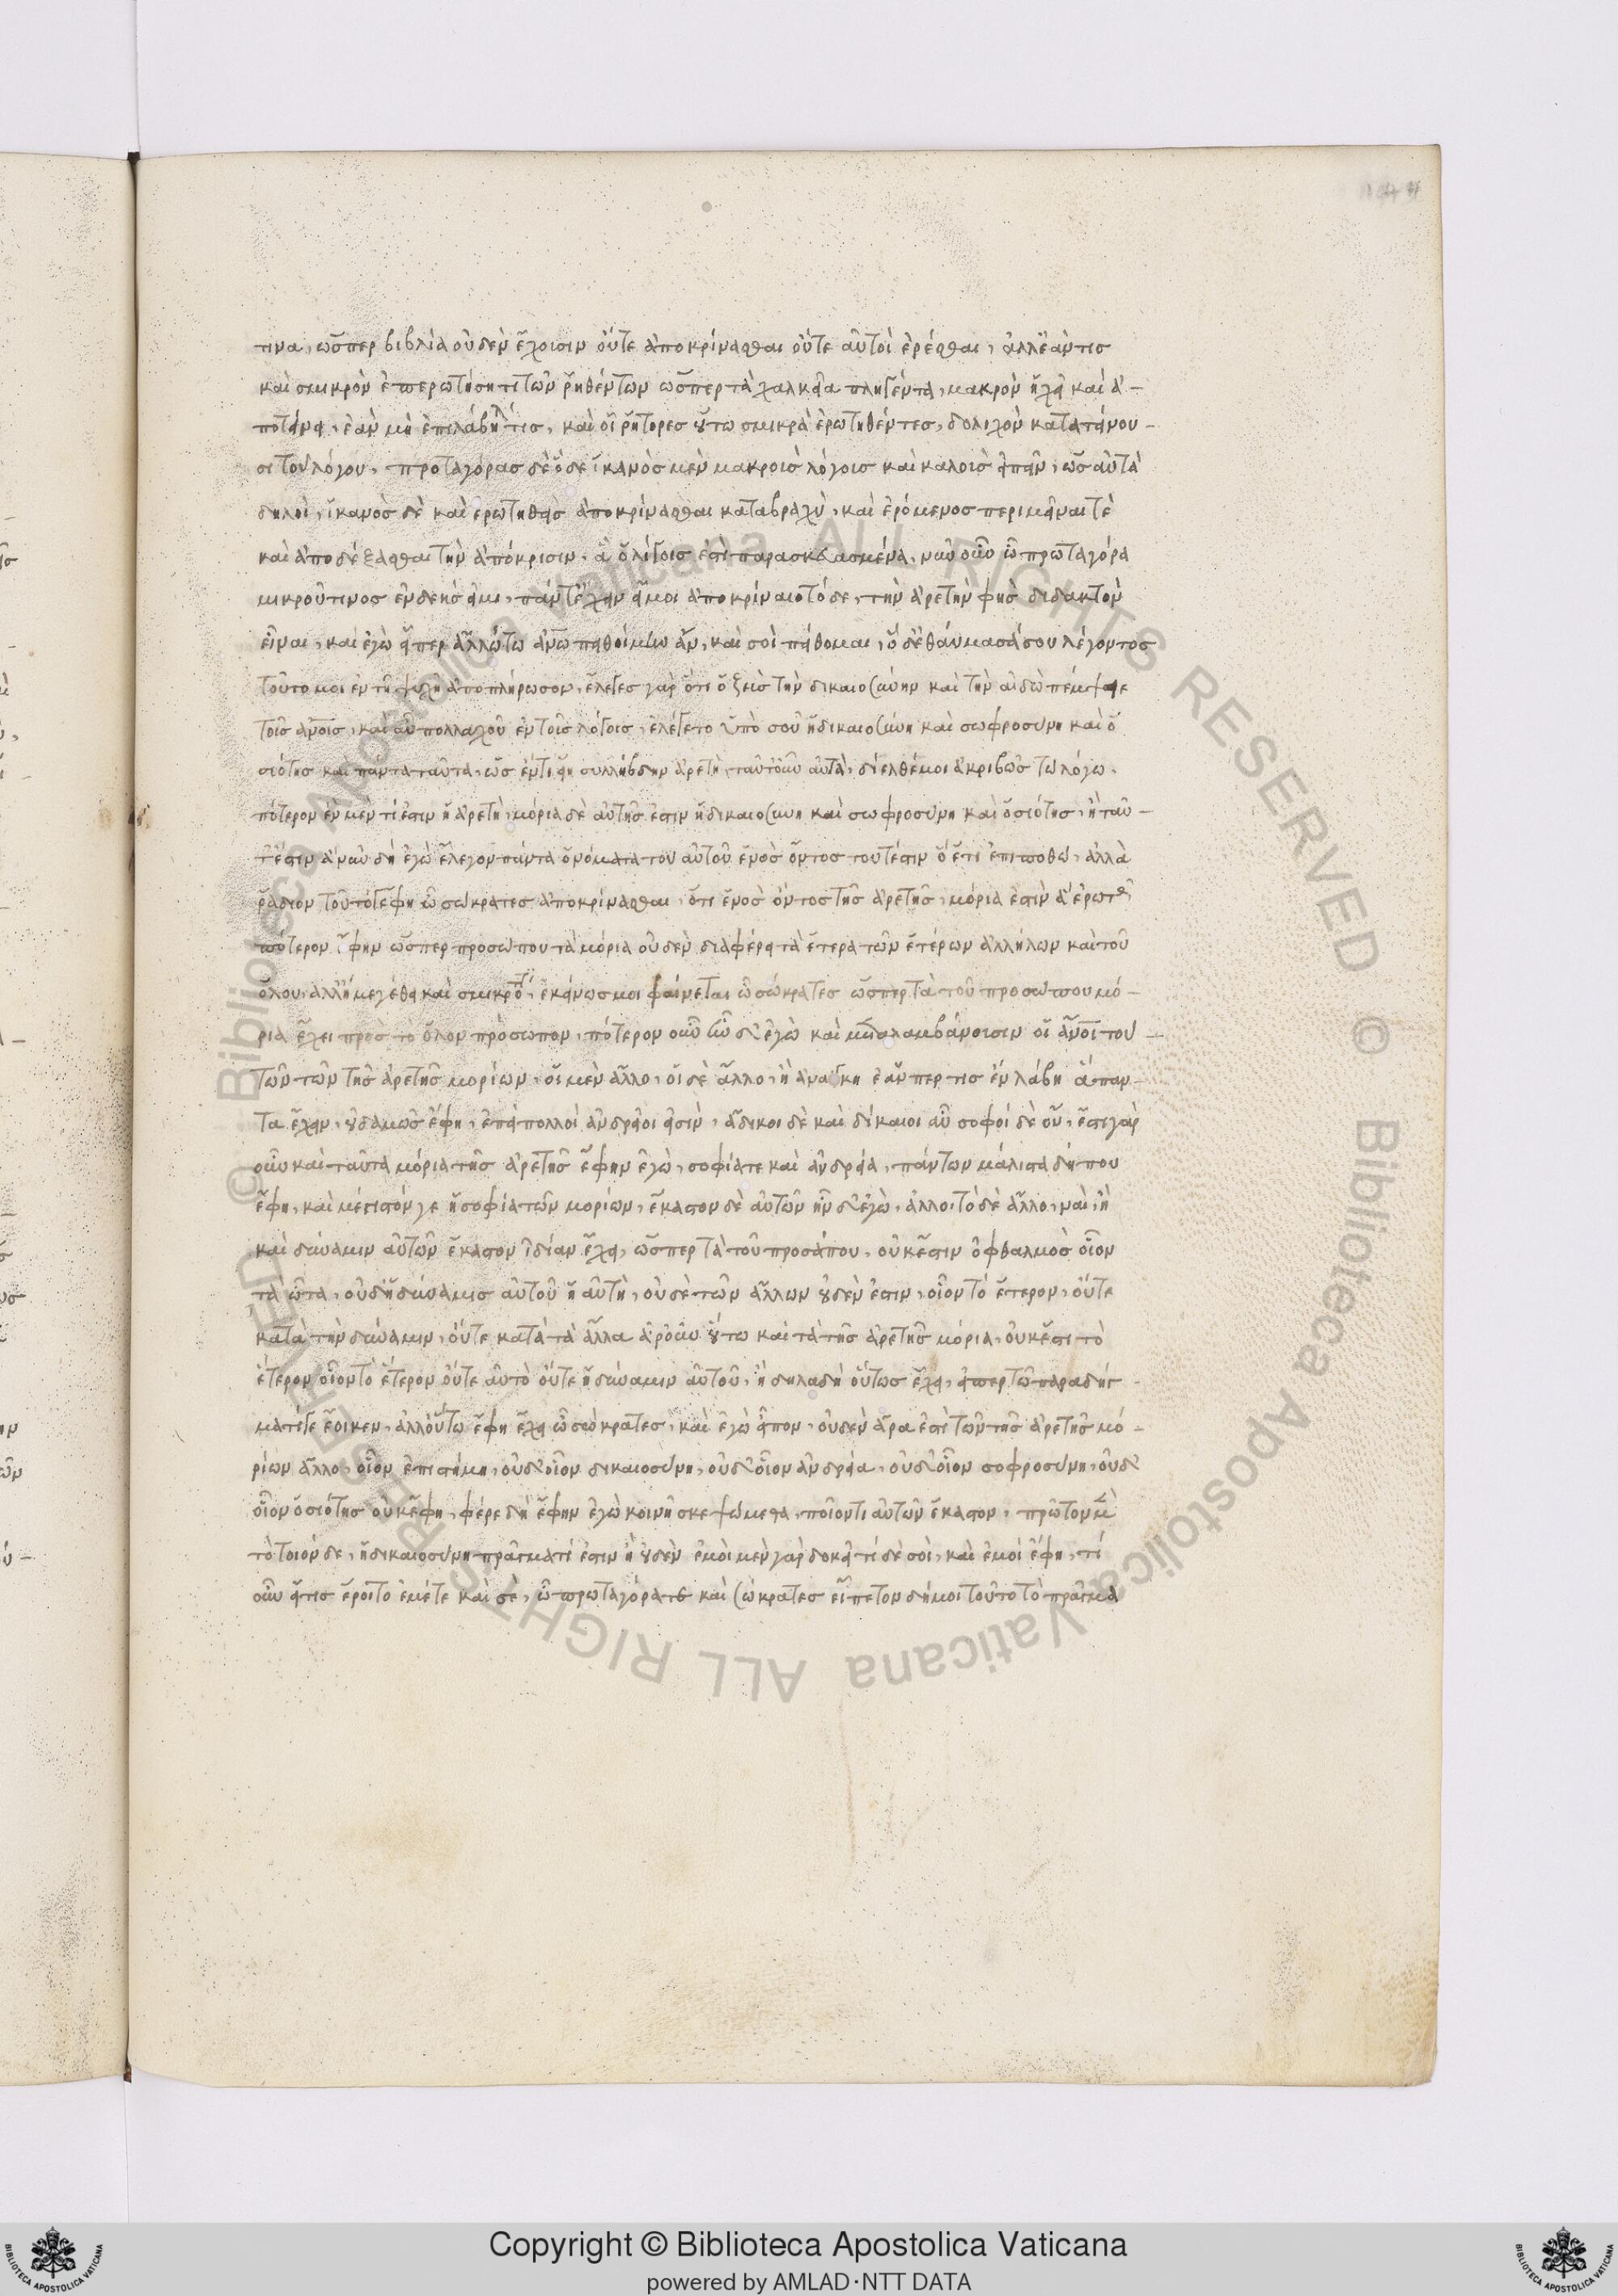 τινα, ὥσπερ βιβλία οὐδὲν ἔχοισιν οὔτε ἀποκρίνασθαι οὔτε αὐτοὶ ἐρέσθαι, ἀλλ' ἐάν τισ
καὶ σμικρὸν ἐπερωτήσῃ τι τῶν ῥηθέντων ὥσπερ τὰ χαλκεῖα πληγέντα, μακρὸν ἠχεῖ καὶ ἀ-
ποτείνει, ἐὰν μὴ ἐπιλάβηταί τισ, καὶ οἱ ῥήτορεσ οὕτω σμικρὰ ἐρωτηθέντεσ, δολιχὸν κατατείνου-
σι τοῦ λόγου, προταγόρασ δὲ ὅδε ἱκανὸσ μὲν μακροὶσ λόγοισ καὶ καλοὶσ εἰπεῖν, ὡσ αὐτὰ
δηλοὶ, ἱκανὸσ δὲ καὶ ἐρωτηθεὶσ ἀποκρίνασθαι καταβραχὺ, καὶ ἐρόμενοσ περιμεῖναι τὲ
καὶ ἀποδέξασθαι τὴν ἀπόκρισιν, ἃ ὀλίγοισ ἐστὶ παρασκευασμένα, νῦν οὖν ὦ πρωταγόρα
μικροῦ τινοσ ἐνδεήσ εἰμι, πάντ' ἔχειν εἴ μοι ἀποκρίναιο τόδε, τὴν ἀρετὴν φὴσ διδακτὸν
εἶναι, καὶ ἐγὼ εἴπερ ἄλλῳ τῳ ἀνω πειθοίμην ἂν, καὶ σοὶ πείθομαι, ὃ δ' ἐθαύμασά σου λέγοντοσ
τοῦτο μοι ἐν τῇ ψυχῇ ἀποπλήρωσον, ἔλεγεσ γὰρ ὅτι ὁ ζεὺσ τὴν δικαιοσύνην καὶ τὴν αἰδῶ πέμψειε
τοῖσ ἀνοισ, καὶ αὖ πολλαχοῦ ἐν τοῖσ λόγοισ, ἐλέγετο ὑπὸ σοῦ ἡ δικαιοσύνη καὶ σωφροσύνη καὶ ὁ
σιότησ καὶ πάντα ταῦτα, ὡσ ἕν τι εἴη συλλήβδην ἀρετὴ, ταῦτ' οὖν αὐτὰ, δίελθέ μοι ἀκριβῶσ τῷ λόγῳ.
πότερον ἓν μέν τί ἐστιν ἡ ἀρετὴ, μόρια δὲ αὐτῆσ ἐστιν ἡ δικαιοσύνη καὶ σωφροσύνη καὶ ὁσιότησ, ἢ ταῦ-
τ' ἐστιν ἃ νῦν δὴ ἐγὼ ἔλεγον πάντα ὀνόματα τοῦ αὐτοῦ ἑνὸσ ὄντοσ τοῦτ' ἐστιν ὃ ἔτι ἐπιποθῶ, ἀλλὰ
ῥάδιον τοῦτό γ' ἔφη ὦ σώκρατεσ ἀποκρίνασθαι, ὅτι ἑνὸσ ὄντοσ τῆσ ἀρετῆσ, μόρια ἐστὶν ἃ ἐρωτᾷσ
πότερον ἔφην ὥσπερ προσώπου τὰ μόρια οὐδὲν διαφέρει τὰ ἕτερα τῶν ἑτέρων ἀλλήλων καὶ τοῦ
ὅλου, ἀλλ' ἢ μεγέθει καὶ σμικρότητι, ἐκείνωσ μοι φαίνεται ὦ σώκρατεσ ὥσπερ τὰ τοῦ προσώπου μό-
ρια ἔχει πρὸσ τὸ ὅλον πρόσωπον, πότερον οὖν ἦν δ' ἐγὼ καὶ μεταλαμβάνοισιν οἱ ἄνοι τού-
των τῶν τῆσ ἀρετῆσ μορίων, οἱ μὲν ἄλλο, οἱ δὲ ἄλλο, ἢ ἀνάγκη ἐάν περ τισ ἓν λάβῃ ἅπαν-
τα ἔχειν, οὐδαμῶσ ἔφη, ἐπεὶ πολλοὶ ἀνδρεῖοι εἰσὶν, ἄδικοι δὲ καὶ δίκαιοι αὖ σοφοὶ δὲ οὔ, ἔστι γὰρ
οὖν καὶ ταῦτα μόρια τῆσ ἀρετῆσ ἔφην ἐγὼ, σοφία τε καὶ ἀνδρεία, πάντων μάλιστα δή που
ἔφη, καὶ μέγιστόν γε ἡ σοφία τῶν μορίων, ἕκαστον δὲ αὐτῶν ἦν δ' ἐγὼ, ἄλλο, τὸ δὲ ἄλλο, ναὶ, ἦ
καὶ δύναμιν αὐτῶν ἕκαστον ἰδίαν ἔχει, ὥσπερ τὰ τοῦ προσώπου, οὐκ ἔστιν ὀφθαλμὸσ οἷον
τὰ ὦτα, οὐδ' ἡ δύναμισ αὐτοῦ ἡ αὐτὴ, οὐδὲ τῶν ἄλλων οὐδὲν ἐστιν, οἷον τὸ ἕτερον, οὔτε
κατὰ τὴν δύναμιν, οὔτε κατὰ τὰ ἄλλα ἆρ' οὖν οὕτω καὶ τὰ τῆσ ἀρετῆσ μόρια, οὐκ ἔστι τὸ
ἕτερον οἷον τὸ ἕτερον οὔτε αὐτὸ οὔτε ἡ δύναμιν αὐτοῦ, ἢ δηλαδὴ οὕτωσ ἔχει, εἴπερ τῷ παραδείγ-
ματί γε ἔοικεν, ἀλλ' οὕτω ἔφη ἔχει ὦ σώκρατεσ, καὶ ἐγὼ εἶπον, οὐδὲν ἄρα ἐστὶ τῶν τῆσ ἀρετῆσ μο-
ρίων ἄλλο, οἷον ἐπιστήμη, οὐδ' οἷον δικαιοσύνη, οὐδ' οἷον ἀνδρεία, οὐδ' οἷον σοφροσύνη, οὐδ'
οἷον ὁσιότησ οὐκ ἔφη, φέρε δὴ ἔφην ἐγὼ κοινῇ σκεψώμεθα, ποῖόν τι αὐτῶν ἕκαστον, πρῶτον μὲν
τὸ τοιόνδε, ἡ δικαιοσύνη πρᾶγμα τί ἐστιν ἢ οὐδὲν ἐμοὶ μὲν γὰρ δοκεῖ τί δὲ σοὶ, καὶ ἐμοὶ ἔφη, τί
οὖν εἴ τισ ἔροιτο ἐμέ τε καὶ σὲ, ὦ πρωταγόρα τε καὶ σώκρατεσ εἴπετον δή μοι τοῦτο τὸ πρᾶγμα
Copyright © Biblioteca Apostolica Vaticana
powered by AMLAD·NTT DATA